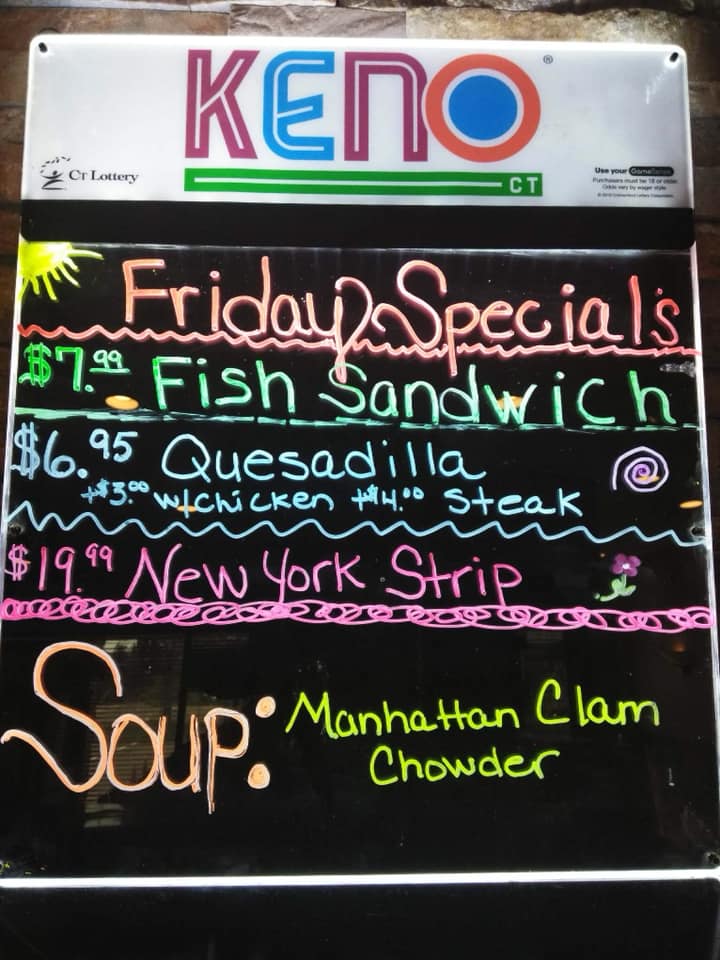 KENO ®
CT
CT Lottery
Use your GameSense
Purchasers must be 18 or older
Odds vary by wager style
Friday Specials
$7.99 Fish Sandwich
$6.95 Quesadilla
+$3.00 w/chicken +$4.00 Steak
$19.99 New York Strip
Soup: Manhattan Clam
Chowder